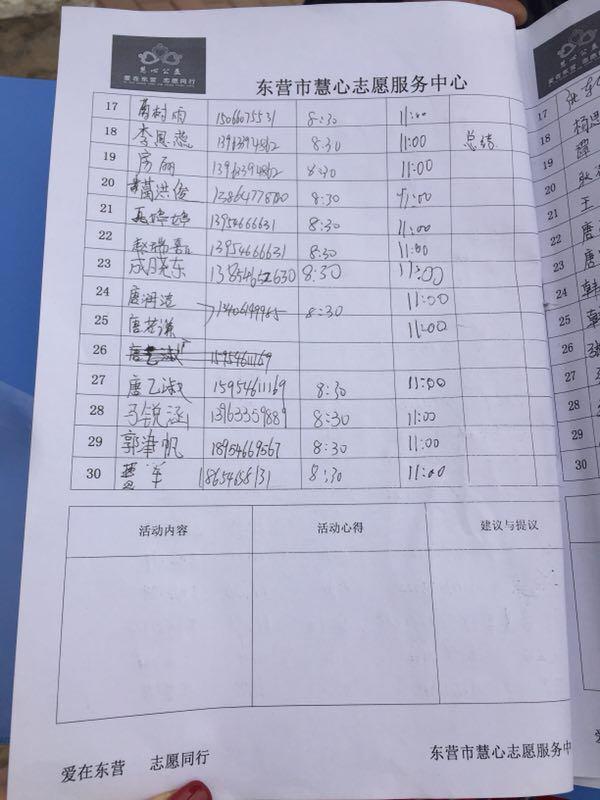 慧心公益
爱在东营 志愿同行
东营市慧心志愿服务中心
17 树雨 15066075531 8:30 11:00
18 李恩蕊 13963394862 8:30 11:00 总结
19 房丽 13963394862 8:30 11:00
20 蔺洪俊 8:30 11:00
21 婷婷 13954666631 8:30 11:00
22 赵瑞嘉 13954666631 8:30 11:00
23 成晓东 13854652630 8:30 11:00
24 唐润 13406149965 8:30 11:00
25 唐若谦 11:00
26 唐 淑 15954611169
27 唐乙淑 15954611169 8:30 11:00
28 马锐涵 13963359889 8:30 11:00
29 郭泽帆 18954669567 8:30 11:00
30 军 18654658131 8:30 11:00
活动内容 活动心得 建议与提议
爱在东营 志愿同行 东营市慧心志愿服务中
17
18 杨
19
20
21 王
22 唐
23 唐
24 韩
25
26
27
28
29
30